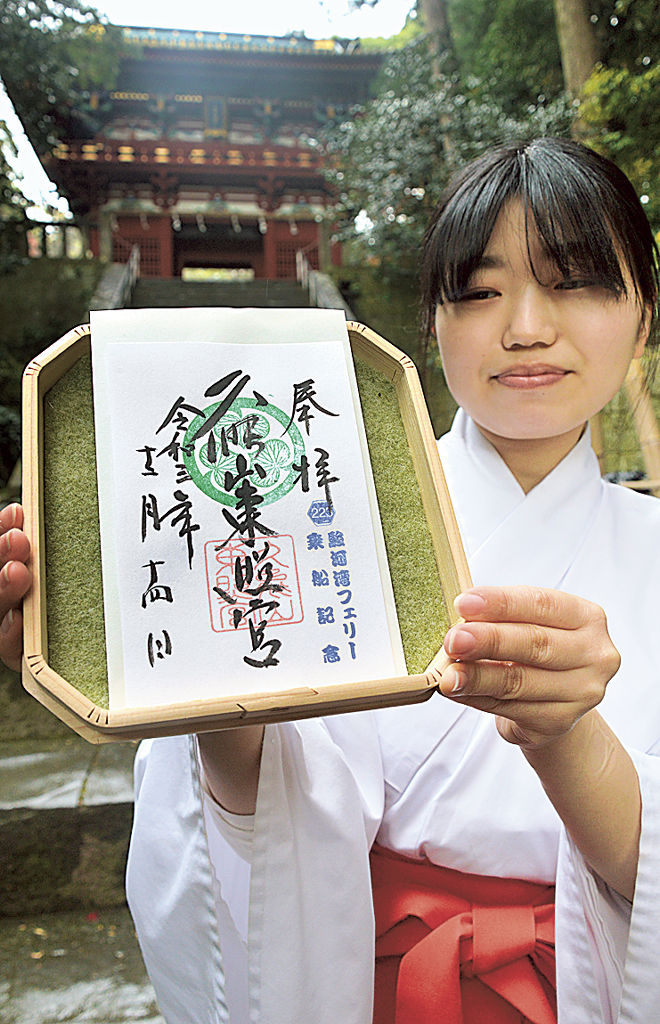 奉拝
223
駿河湾フェリー
乗船記念
久能山東照宮
令和三年
十二月十四日